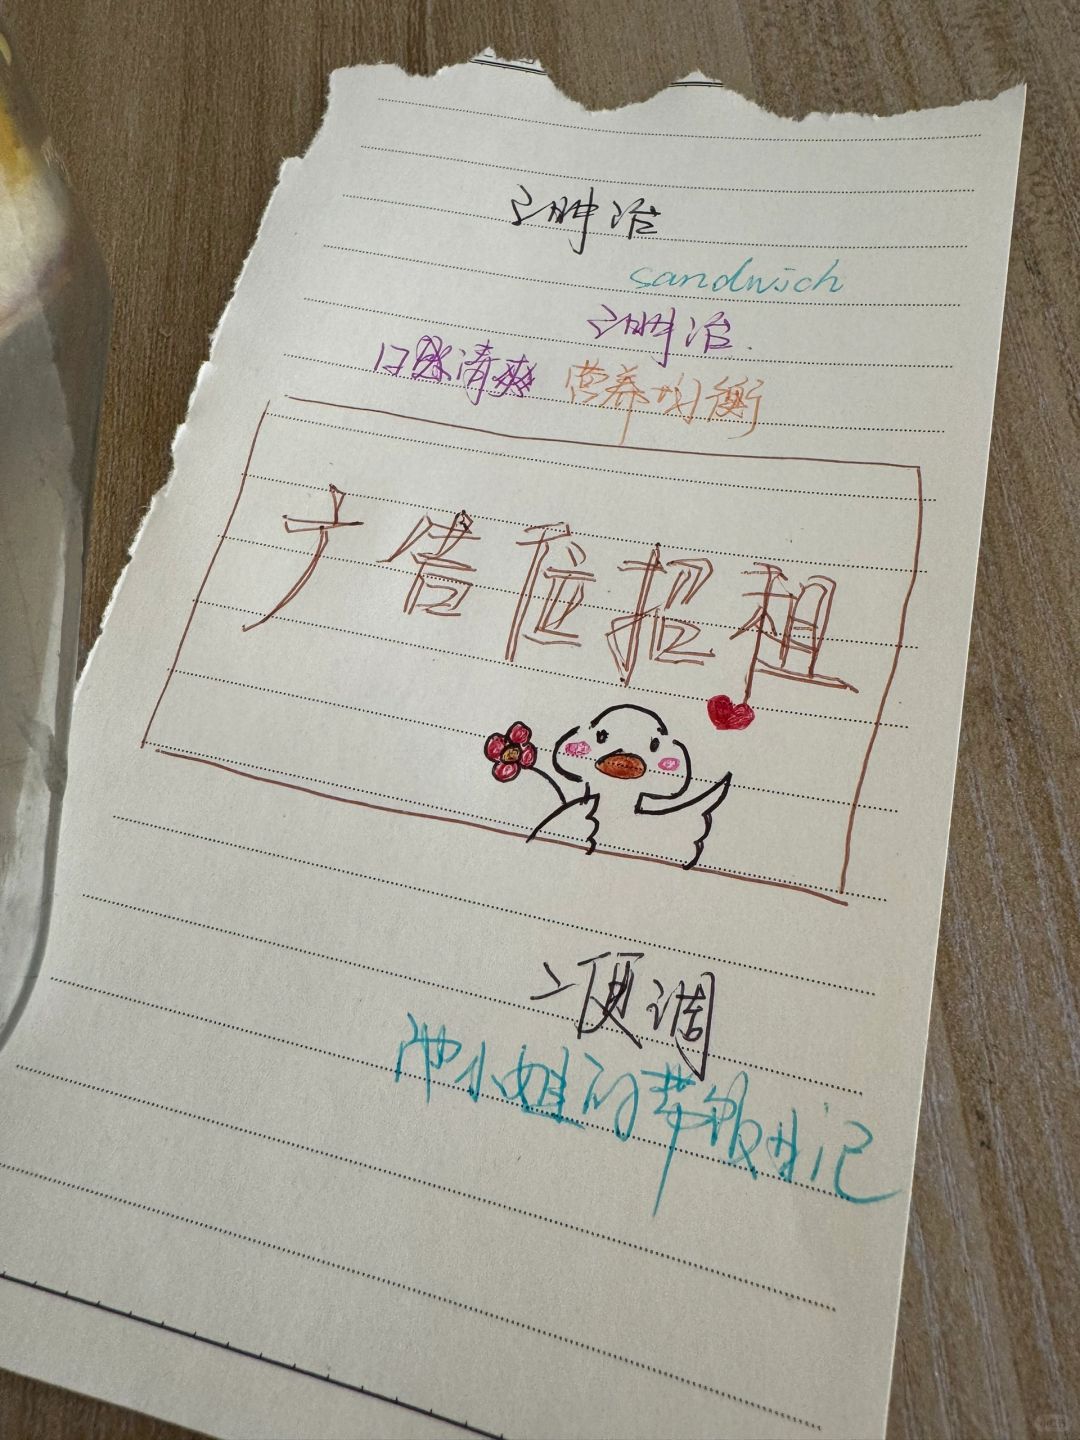 三明治
sandwich
三明治
口感清爽 营养均衡
广告位招租
二便调
小姐的带饭日记